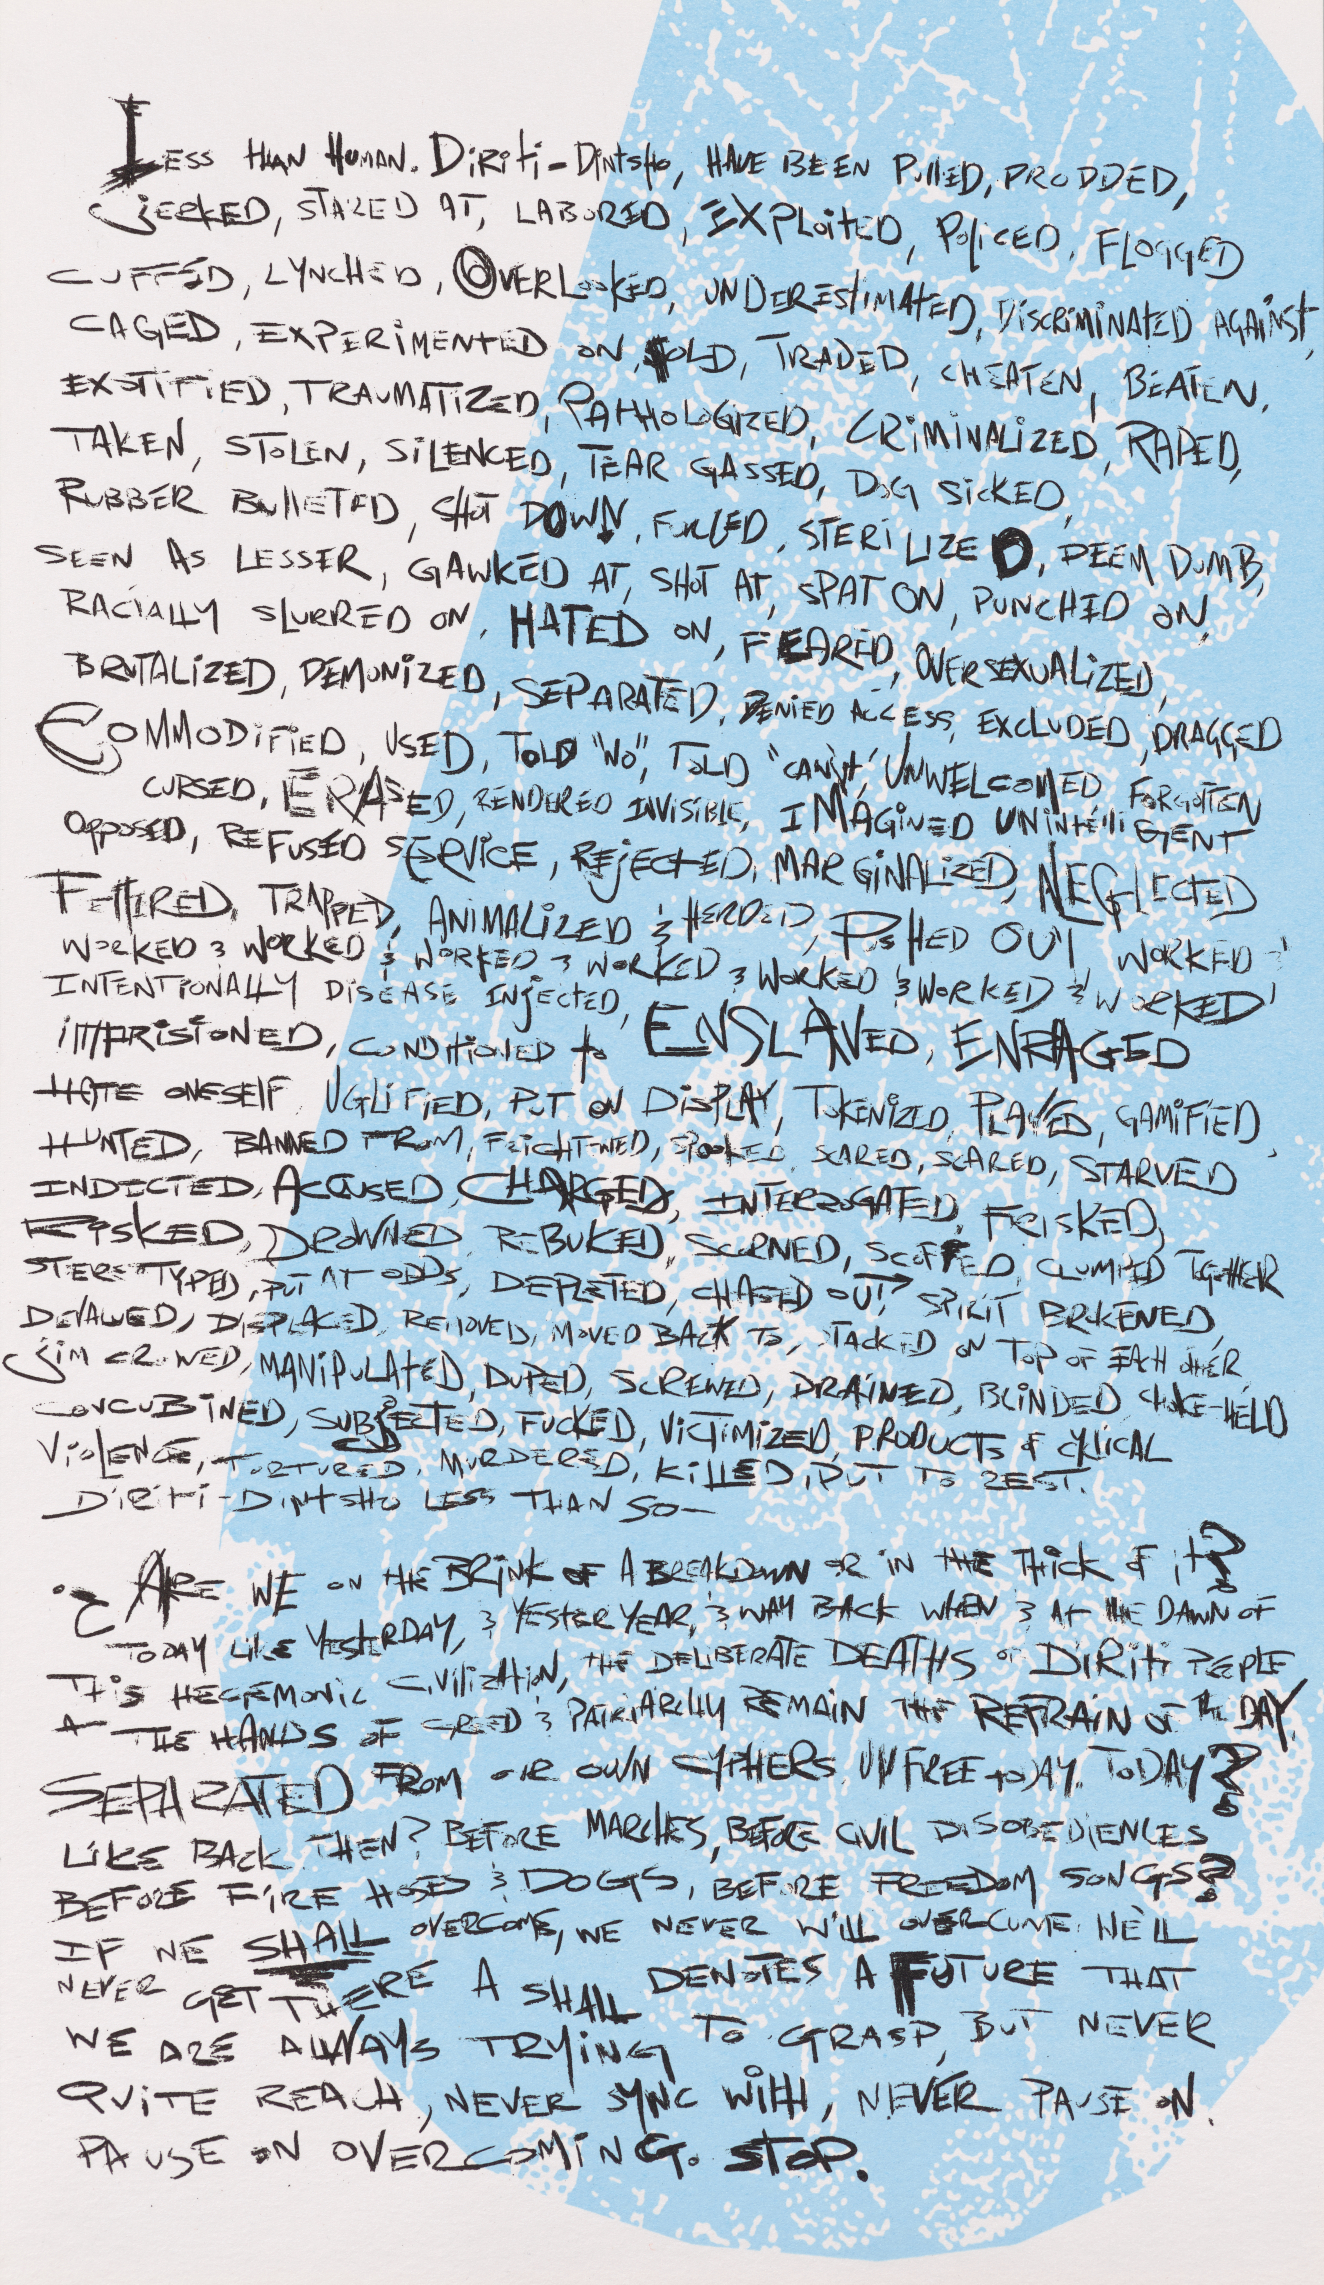 LESS THAN HUMAN. DIRITI-DINTSHO, HAVE BEEN PULLED, PRODDED,
JERKED, STARED AT, LABORED, EXPLOITED, POLICED, FLOGGED
CUFFED, LYNCHED, OVERLOOKED, UNDERESTIMATED, DISCRIMINATED AGAINST,
CAGED, EXPERIMENTED ON, SOLD, TRADED, CHEATEN, BEATEN,
EXSTIFIED, TRAUMATIZED, PATHOLOGIZED, CRIMINALIZED, RAPED,
TAKEN, STOLEN, SILENCED, TEAR GASSED, DOG SICKED,
RUBBER BULLETED, SHOT DOWN, FORCED, STERILIZED, DEEM DUMB,
SEEN AS LESSER, GAWKED AT, SHOT AT, SPAT ON, PUNCHED ON,
RACIALLY SLURRED ON, HATED ON, FEARED, OVERSEXUALIZED,
BRUTALIZED, DEMONIZED, SEPARATED, DENIED ACCESS, EXCLUDED, DRAGGED
COMMODIFIED, USED, TOLD "NO", TOLD "CAN'T", UNWELCOMED FORGOTTEN
CURSED, ERASED, RENDERED INVISIBLE, IMAGINED UNINTELLIGENT
OPPOSED, REFUSED SERVICE, REJECTED, MARGINALIZED, NEGLECTED
FETTIRED, TRAPPED, ANIMALIZED & HERDED, PUSHED OUT WORKED &
WORKED & WORKED & WORKED & WORKED & WORKED & WORKED & WORKED
INTENTIONALLY DISEASE INJECTED, ENSLAVED, ENRAGED
IMPRISIONED, CONDITIONED to
HATE ONESELF, UGLIFIED, PUT ON DISPLAY, TOKENIZED, PLAYED, GAMIFIED,
HUNTED, BANNED FROM, FRIGHTNED, SPOOKED, SCARED, SCARED, STARVED
INDICTED, ACCUSED, CHARGED, INTERROGATED, FRISKED,
RISKED, DROWNED, REBUKED, SCORNED, SCOFFED, CLUMPED TOGETHER
STEREOTYPED, PUT AT ODDS, DEPLETED, CHASED OUT, SPIRIT BROKENED,
DEVALUED, DISPLACED, REMOVED, MOVED BACK TO, STACKED ON TOP OF EACH OTHER
JIM CROWED, MANIPULATED, DUPED, SCREWED, DRAINED, BLINDED CHOKE-HELD
CONCUBINED, SUBJECTED, FUCKED, VICTIMIZED, PRODUCTS of CYCLICAL
VIOLENCE, TORTURED, MURDERED, KILLED, PUT TO REST.
DIRITI-DINTSHO LESS THAN SO—
¿ ARE WE ON THE BRINK OF A BREAKDOWN OR IN THE THICK of it?
TODAY LIKE YESTERDAY, & YESTERYEAR, & WAY BACK WHEN & AT THE DAWN OF
THIS HEGEMONIC CIVILIZATION, THE DELIBERATE DEATHS of DIRITI PEOPLE
AT THE HANDS OF GREED & PATRIARCHY REMAIN THE REFRAIN OF THE DAY.
SEPARATED FROM OUR OWN CYPHERS, UNFREE TODAY. TODAY?
LIKE BACK THEN? BEFORE MARCHES, BEFORE CIVIL DISOBEDIENCES
BEFORE FIRE HOSES & DOGS, BEFORE FREEDOM SONGS?
IF WE SHALL OVERCOME, WE NEVER WILL OVERCOME. WE'LL
NEVER GET THERE A SHALL DENOTES A FUTURE THAT
WE ARE ALWAYS TRYING TO GRASP, BUT NEVER
QUITE REACH, NEVER SYNC WITH, NEVER PAUSE ON.
PAUSE ON OVERCOMING. STOP.